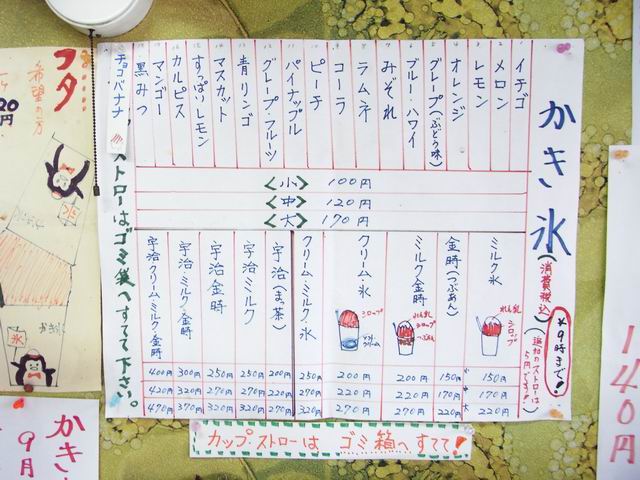 かき氷
(消費税込)
*9時まで!
(追加のストローは
5円です!)
イチゴ
メロン
レモン
オレンジ
グレープ(ぶどう味)
ブルー・ハワイ
みぞれ
ラムネ
コーラ
ピーチ
パイナップル
グレープ・フルーツ
青リンゴ
マスカット
すっぱいレモン
カルピス
マンゴー
黒みつ
チョコバナナ
<小> 100円
<中> 120円
<大> 170円
ミルク氷
れん乳
シロップ
150円
170円
220円
金時(つぶあん)
150円
170円
220円
ミルク金時
れん乳
シロップ
つぶあん
200円
220円
270円
クリーム氷
シロップ
ソフトクリーム
200円
220円
270円
クリーム・ミルク氷
250円
270円
320円
宇治(まっ茶)
200円
220円
270円
宇治ミルク
250円
270円
320円
宇治金時
250円
270円
320円
宇治ミルク金時
300円
320円
370円
宇治クリームミルク金時
400円
420円
470円
ストローはゴミ箱へすてて下さい。
カップ・ストローは ゴミ箱へすてて!
フタ
希望の方
20円
氷
かき氷
氷
かき
9月
140円